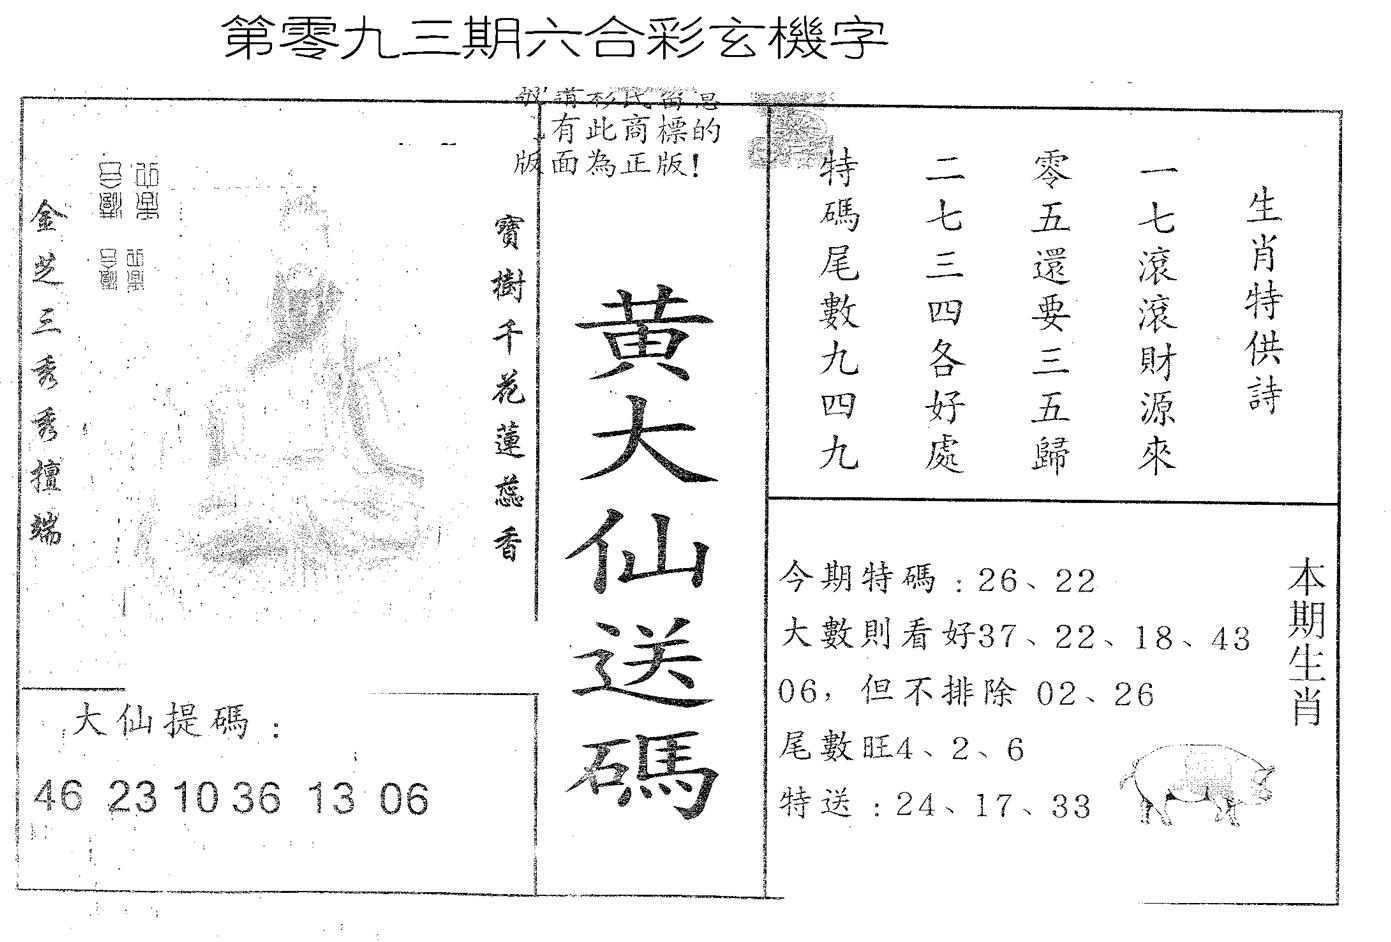 第零九三期六合彩玄機字
有此商標的
版面為正版!
生肖特供詩
一七滾滾財源來
零五還要三五歸
二七三四各好處
特碼尾數九四九
黄大仙送碼
寶樹千花蓮蕊香
金芝三秀秀擅端
大仙提碼：
46 23 10 36 13 06
本期生肖
今期特碼：26、22
大數則看好37、22、18、43
06，但不排除 02、26
尾數旺4、2、6
特送：24、17、33